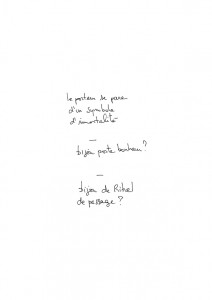 le porteur se pare
d'un symbole
d'immortalité
—
bijou porte bonheur ?
—
bijou de Rituel
de passage ?